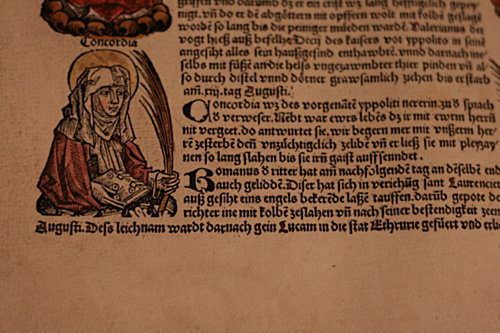 griffen vnd darumb dz er ein crist wz lang hefftigclich gepey
nigt. vñ do er dē abgöttern mit opffern wolt mit kolbē geslagē
woꝛdē so lang bis die peiniger müeden wardē. Valerianus der
vogt hieß auß befelhe Decij des kaisers voꝛ yppolito in seinē
angesiht alles sein haußgesind enthawbtē. vnnd darnach ine
selbs mit füßē an die hels vngezawmbter thier pinden vñ al
so durch distel vnnd döꝛner grawsamlich zihen bis er starb
am .xiij. tag Augusti.
Concordia
Concoꝛdia wz des voꝛgenātē yppoliti nererin. zu ď spꝛach
ď verweser. Nēbt war ewrs lebēs dz ir mit ewrm herrñ
nit vergeet. do antwurtet sie. wir begern mer mit vnßerm her
rē zesterbē denn vnzüchtigclich zelibē. vñ er ließ sie mit pleyzay
nen so lang slahen bis sie irñ gaist auffsenndet.
Romanus ď ritter hat am nachfolgendē tag an dēselbē end
auch geliddē. Diser hat sich in verichūg sant Laurencien
auß gesiht eins engels bekerēde laßē tauffen. darūb gepote der
richter ine mit kolbē zeslahen vñ nach seiner bestendigkeit zen
Augusti. Dess leichnam wardt darnach gein Lucam in die stat Ethrurie gefüert vnd erlich